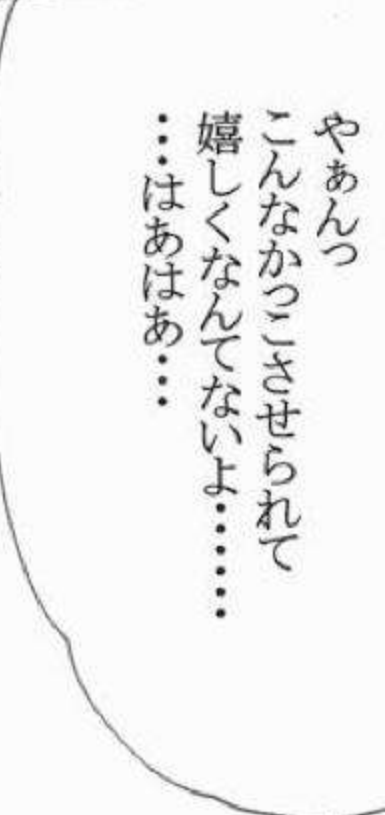 やぁんっ
こんなかっこさせられて
嬉しくなんてないよ……‥
…はあはあ…